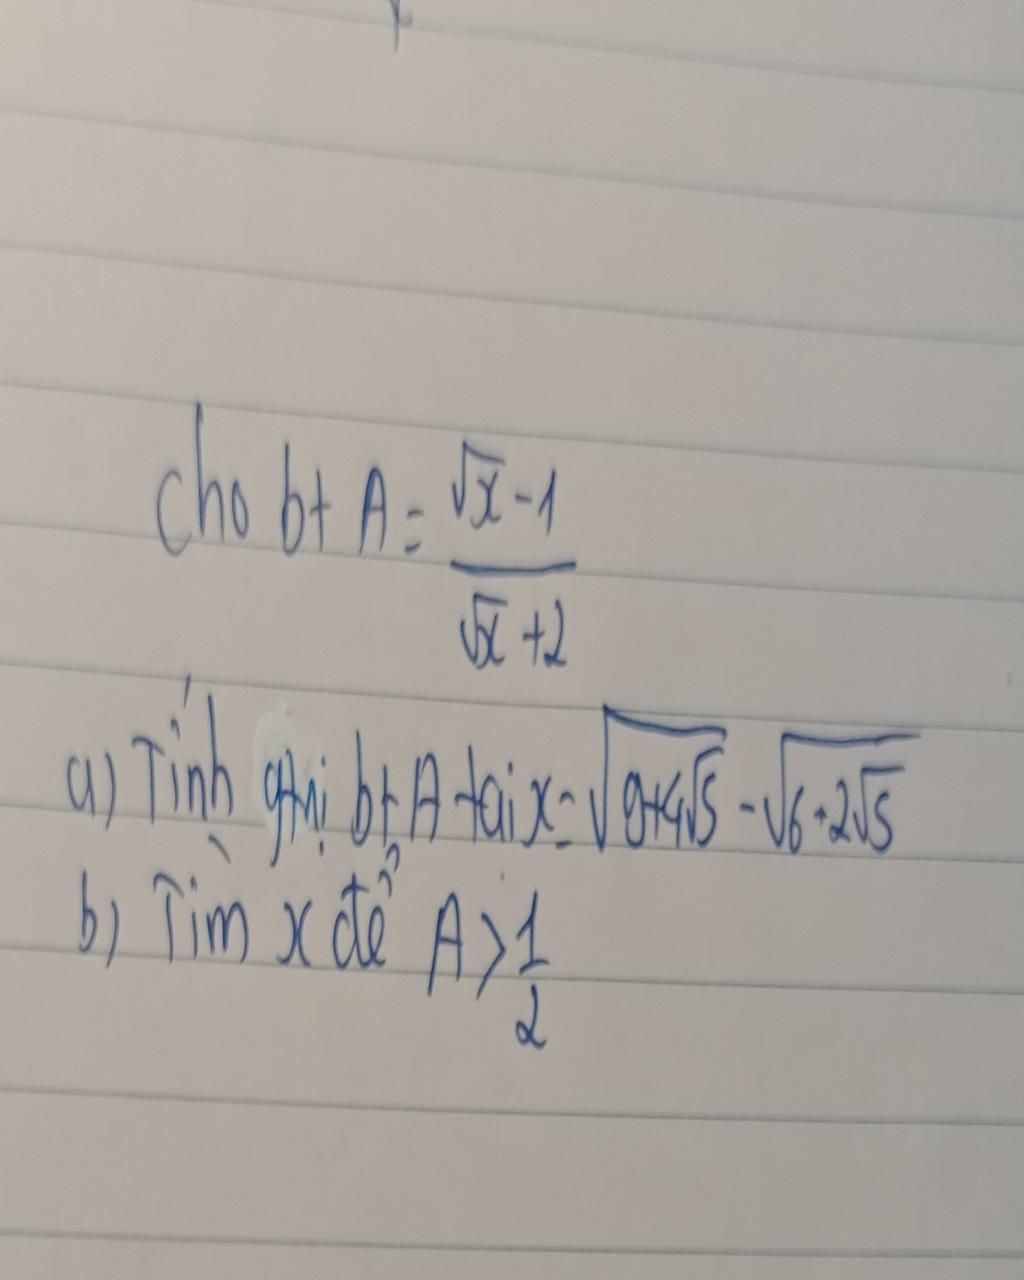 Cho bt A = (√x - 1)/(√x + 2)
a) Tính gtrị bt A tại x = √(9+4√5) - √(6+2√5)
b) Tìm x để A > 1/2